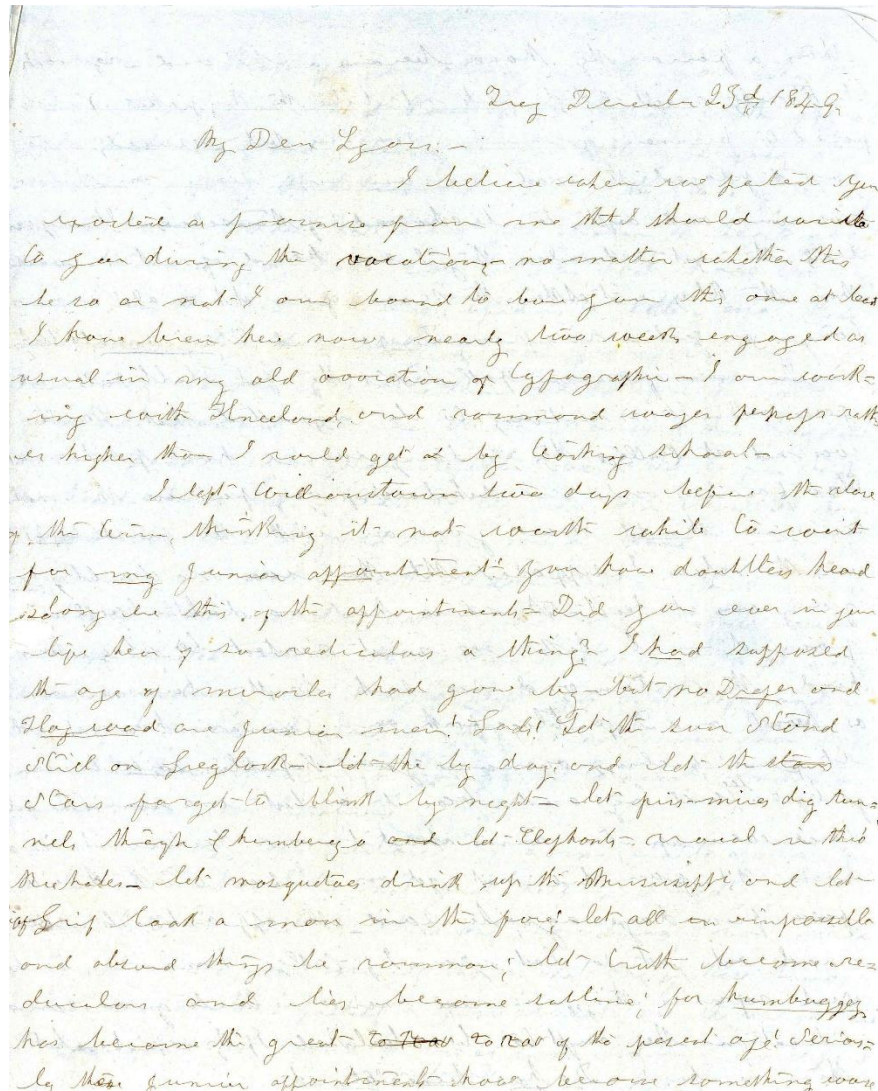 Troy December 23d 1849
My Dear Lyon:—
I believe when we parted you
exacted a promise from me tht I should write
to you during the vacation,— no matter whether this
be so or not— I am bound to bore you this one at least
I have been here now nearly two weeks engaged as
usual in my old avocation of typographie— I am work-
ing with Kneeland and command wages perhaps rath-
er higher than I could get by teaching school—
I left Williamstown two days before the close
of the term, thinking it not worth while to wait
for my Junior appointment! You have doubtless heard
long ere this of the appointments— Did you ever in your
life hear of so rediculous a thing? I had supposed
the age of miracles had gone by— but no Draper and
Haywood are Junior men! Lads! Let the sun stand
still on Greylock— let the by day; and let the stars
stars forget to blink by night— let piss-mires dig tun-
nels through Chimborazo and let Elephants in their
let mosquetoes drink up the Mississippi, and let
Grif look a man in the face; let all impossible
and absurd things be common; let truth become re-
diculous and lies become sublime; for humbuggery
has become the great to kalo to kalo of the present age! Serious-
ly these Junior appointments have become something worse